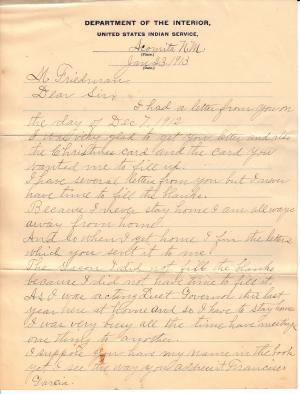 DEPARTMENT OF THE INTERIOR,
UNITED STATES INDIAN SERVICE,
Acomita N.M.
(Place.)
Jan 23, 1913
(Date.)
M. Friedman
Dear Sir,
I had a letter from you on
the day of Dec 7, 1912
I was very glad to get your letter and also
the Christmas card and the card you
wanted me to fill up.
I have several letter from you but I never
have time to fill the blanke.
Because I never stay home I am all ways
away from home.
And so when I get home I fin the letters
which you sent it to me.
The reason I did not fill the blanks
because I did not have time to fill it.
As I was acting Governor this last
year here at home and so I have to stay home
I was very busy all the time have meeting
one thing to another.
I suppose you have my name in the book
yet. I see the way you address Francisco
Garcia.